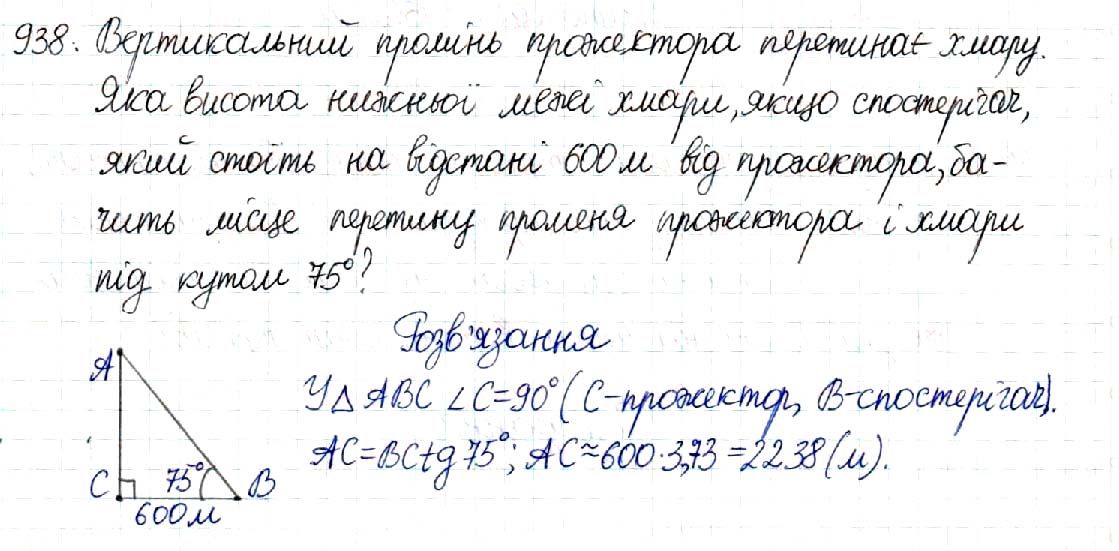 938. Вертикальний промінь прожектора перетинає хмару.
Яка висота нижньої межі хмари, якщо спостерігач,
який стоїть на відстані 600 м від прожектора, ба-
чить місце перетину променя прожектора і хмари
під кутом 75°?
Розв'язання
У △ ABC ∠C=90° (C-прожектор, B-спостерігач).
AC=BCtg75°; AC≈600·3,73=2238 (м).
A
C
75°
B
600м